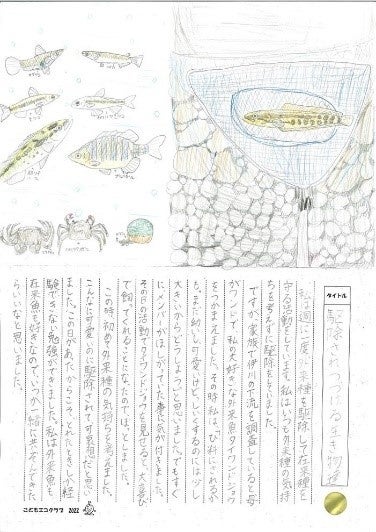 タイトル
駆除されつづける生き物達
私は週に一度、外来種を駆除して在来種を
守る活動をしています。私はいつも外来種の気持
ちを考えずに駆除をしていました。
ですが、家族で伊川の下流を調査していると母
がワンドで、私の大好きな外来魚タイワンドジョウ
をつかまえました。その時私は、び料にされるか
な。まだ幼くし可愛いけど。しいくするのには少し
大きいからどうしようと思いました。でもすぐ
にメンバーがほしがっていた事に気が付きました。
その日の活動でタイワンドジョウを見せると、大喜び
で飼ってくれることになったので、ほっとしました。
この時、初めて外来種の気持ちを考えました。
こんなに可愛いのに駆除されて可哀想だと思い
ました。この日があったからこそ、とれたときしか経
験できない勉強ができました。私は外来魚も
在来魚も好きなのでいつか一緒に共ぞんできた
らいいなと思いました。
こどもエコクラブ 2022